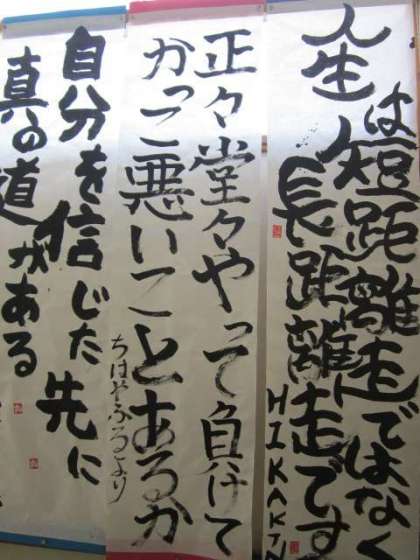 人生は短距離走ではなく
長距離走です
HIKAKIN
正々堂々やって負けて
かっこ悪いことあるか
ちはやふるより
自分を信じた先に
真の道がある